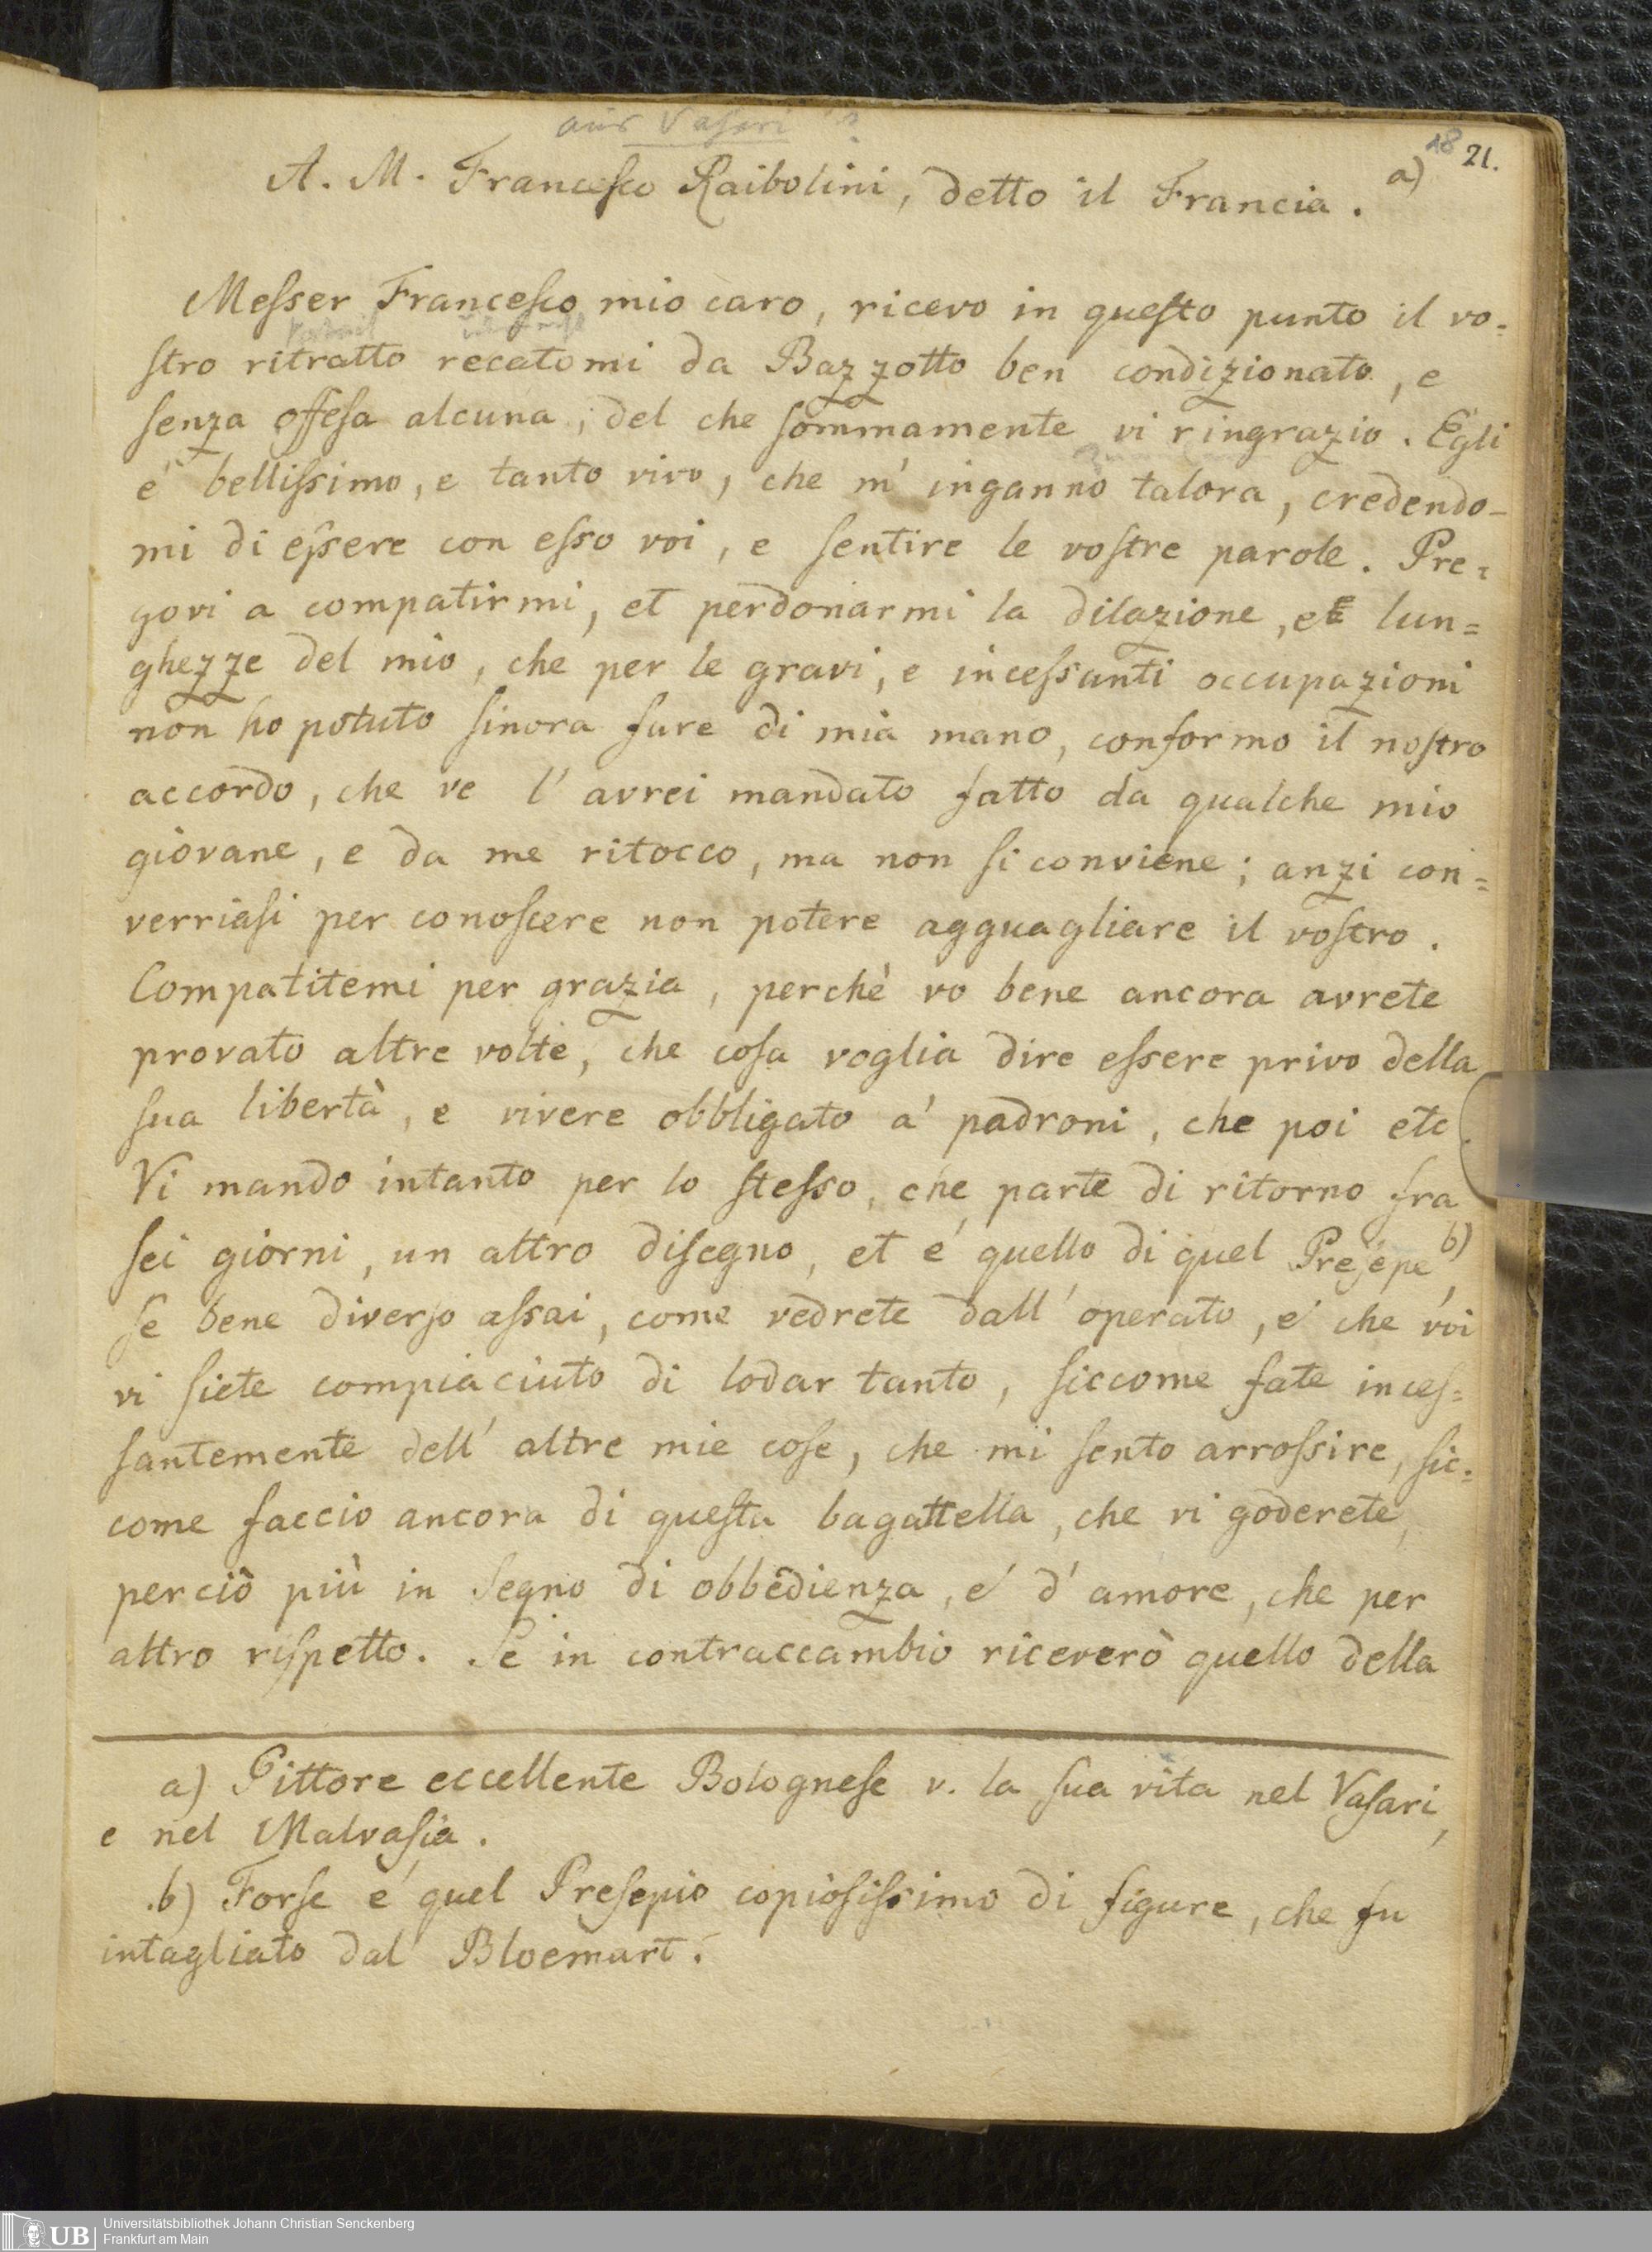 aus Vasari
18 21.
A. M. Francesco Raibolini, detto il Francia. a)
Messer Francesco mio caro, ricevo in questo punto il vo=
stro ritratto recatomi da Bazzotto ben condizionato, e
senza offesa alcuna, del che sommamente vi ringrazio. Egli
é bellissimo, e tanto vivo, che m' inganno talora, credendo-
mi di essere con esso voi, e sentire le vostre parole. Pre=
govi a compatirmi, et perdonarmi la dilazione, e lun=
ghezze del mio, che per le gravi, e incessanti occupazioni
non ho potuto sinora fare di mia mano, conformo il nostro
accordo, che ve l' avrei mandato fatto da qualche mio
giovane, e da me ritocco, ma non si conviene; anzi con=
verriasi per conoscere non potere agguagliare il vostro.
Compatitemi per grazia, perchè vo bene ancora avrete
provato altre volte, che cosa voglia dire essere privo della
sua libertà, e vivere obbligato a' padroni, che poi etc.
Vi mando intanto per lo stesso, che parte di ritorno fra
sei giorni, un altro disegno, et é quello di quel Presepe b),
se bene diverso assai, come vedrete dall' operato, é che voi
vi siete compiaciuto di lodar tanto, siccome fate inces=
santemente dell' altre mie cose, che mi sento arrossire, sic=
come faccio ancora di questa bagattella, che vi goderete,
perciò più in segno di obbedienza, é d' amore, che per
altro rispetto. Se in contraccambio riceverò quello della
a) Pittore eccellente Bolognese v. la sua vita nel Vasari,
e nel Malvasia.
b) Forse é quel Presepio copiosissimo di figure, che fu
intagliato dal Bloemart.
UB
Universitätsbibliothek Johann Christian Senckenberg
Frankfurt am Main